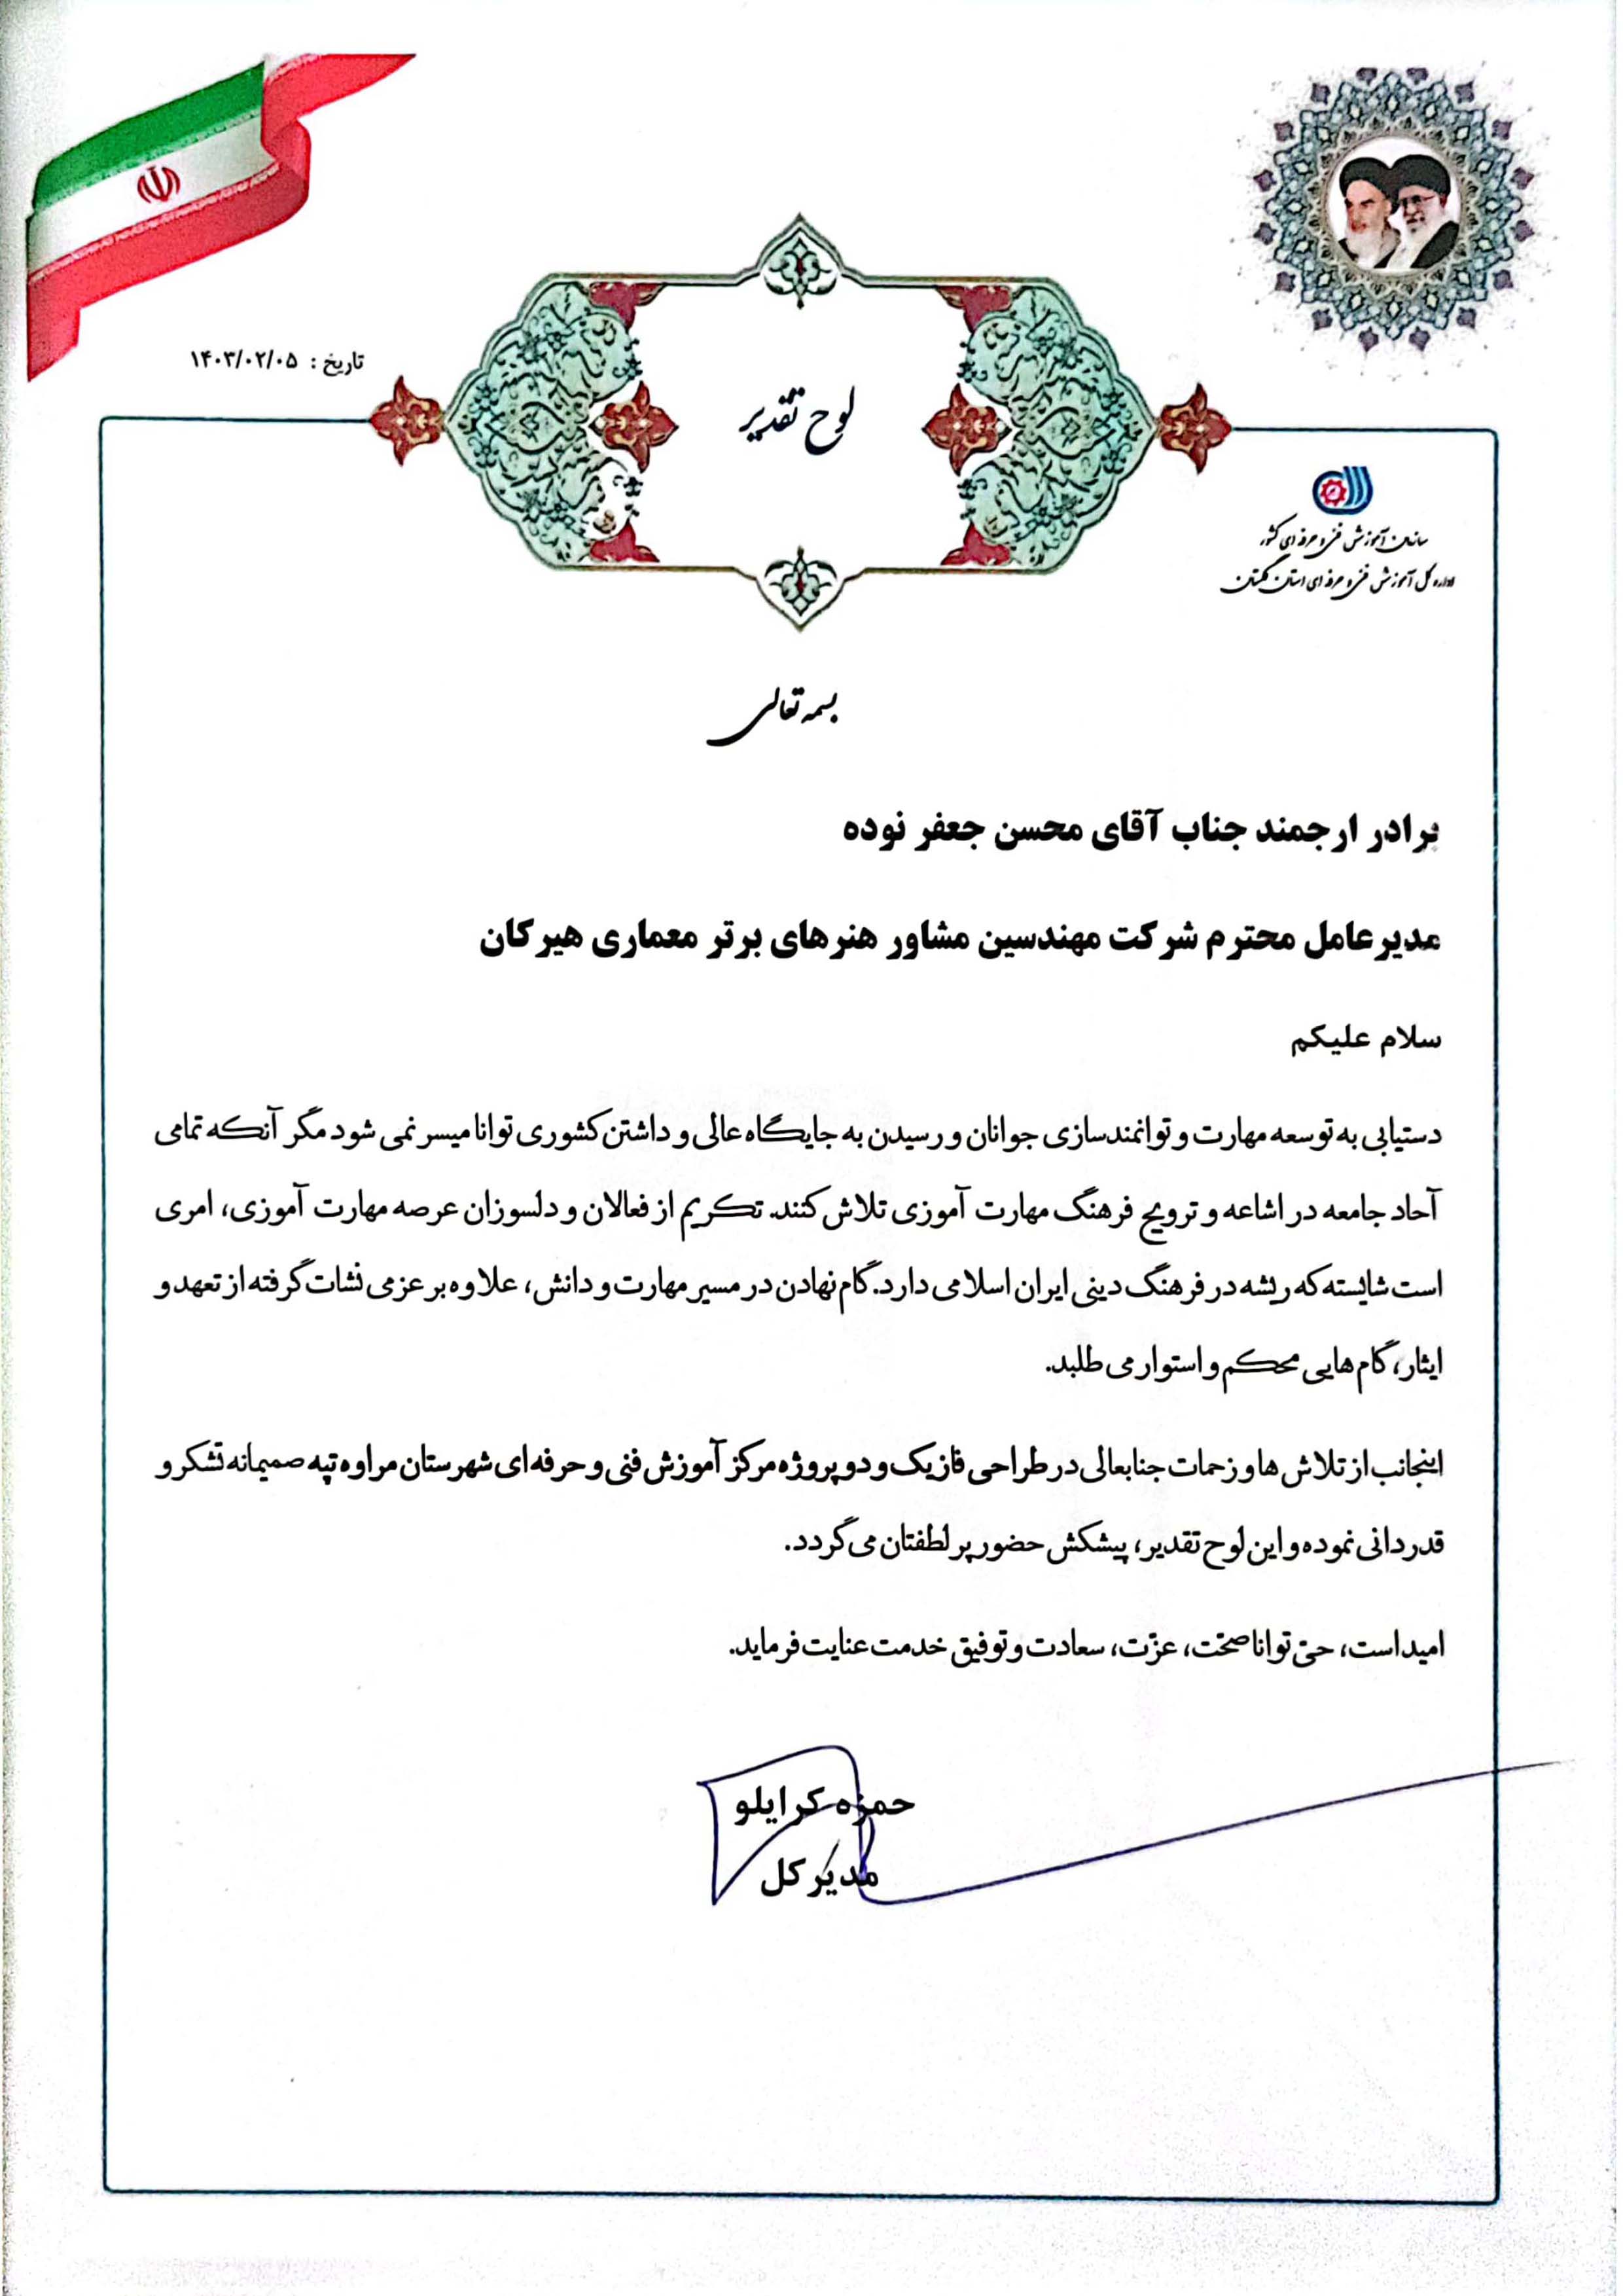 تاریخ : ۱۴۰۳/۰۲/۰۵
لوح تقدیر
سازمان آموزش فنی و حرفه ای کشور
اداره کل آموزش فنی و حرفه ای استان گلستان
بسمه تعالی
برادر ارجمند جناب آقای محسن جعفر نوده
مدیرعامل محترم شرکت مهندسین مشاور هنرهای برتر معماری هیرکان
سلام علیکم
دستیابی به توسعه مهارت و توانمندسازی جوانان و رسیدن به جایگاه عالی و داشتن کشوری توانا میسر نمی شود مگر آنکه تمامی
آحاد جامعه در اشاعه و ترویج فرهنگ مهارت آموزی تلاش کنند. تکریم از فعالان و دلسوزان عرصه مهارت آموزی، امری
است شایسته که ریشه در فرهنگ دینی ایران اسلامی دارد. گام نهادن در مسیر مهارت و دانش، علاوه بر عزمی نشات گرفته از تعهد و
ایثار، گام هایی محکم و استوار می طلبد.
اینجانب از تلاش ها و زحمات جنابعالی در طراحی فاز یک و دو پروژه مرکز آموزش فنی و حرفه ای شهرستان مراوه تپه صمیمانه تشکر و
قدردانی نموده و این لوح تقدیر، پیشکش حضور پر لطفتان می گردد.
امید است، حق توانا صحّت، عزّت، سعادت و توفیق خدمت عنایت فرماید.
حمزه کرایلو
مدیر کل